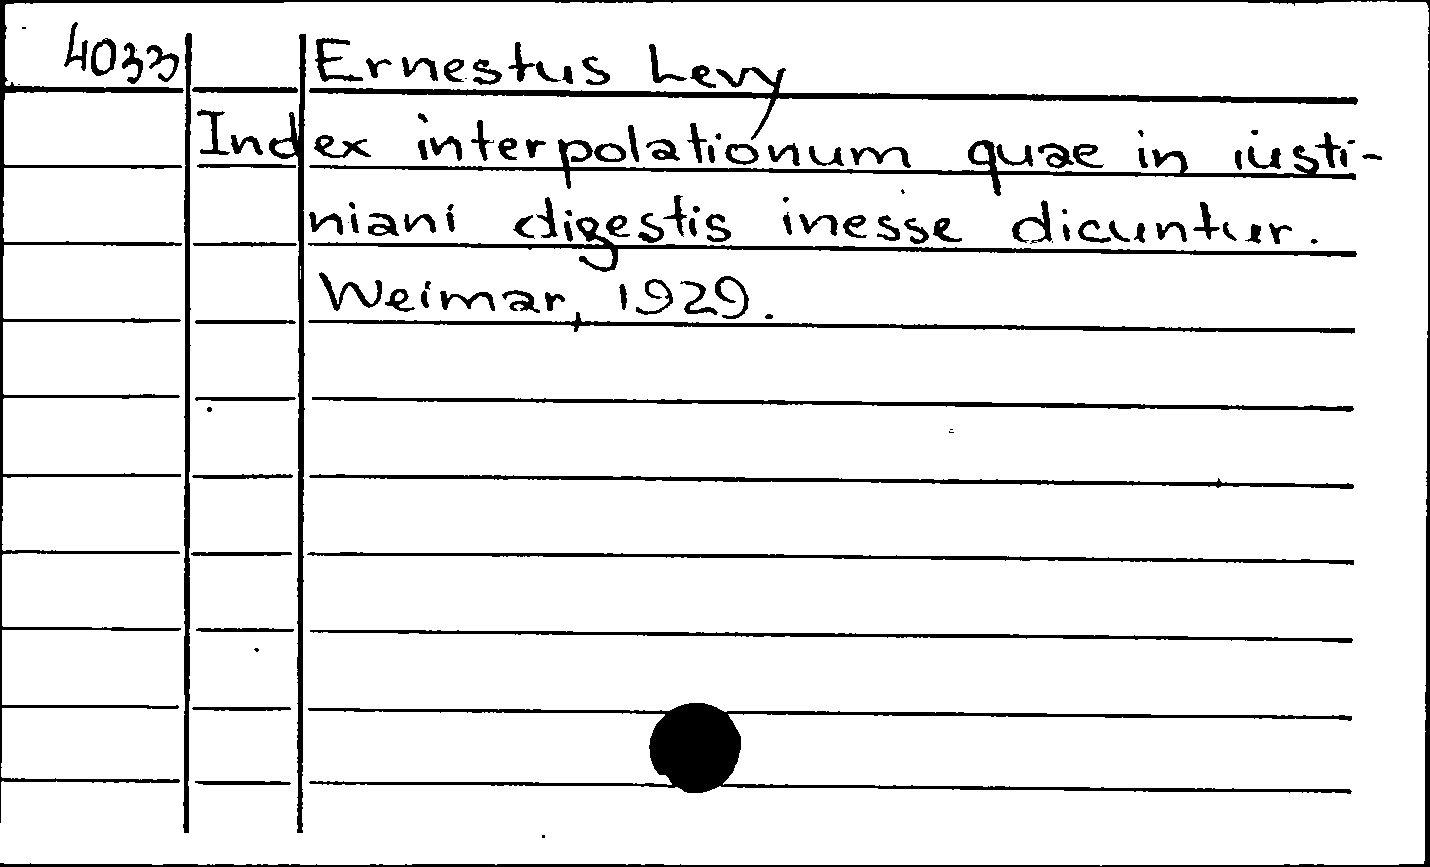 4033 Ernestus Levy
Index interpolationum quae in iusti-
niani digestis inesse dicuntur.
Weimar, 1929.